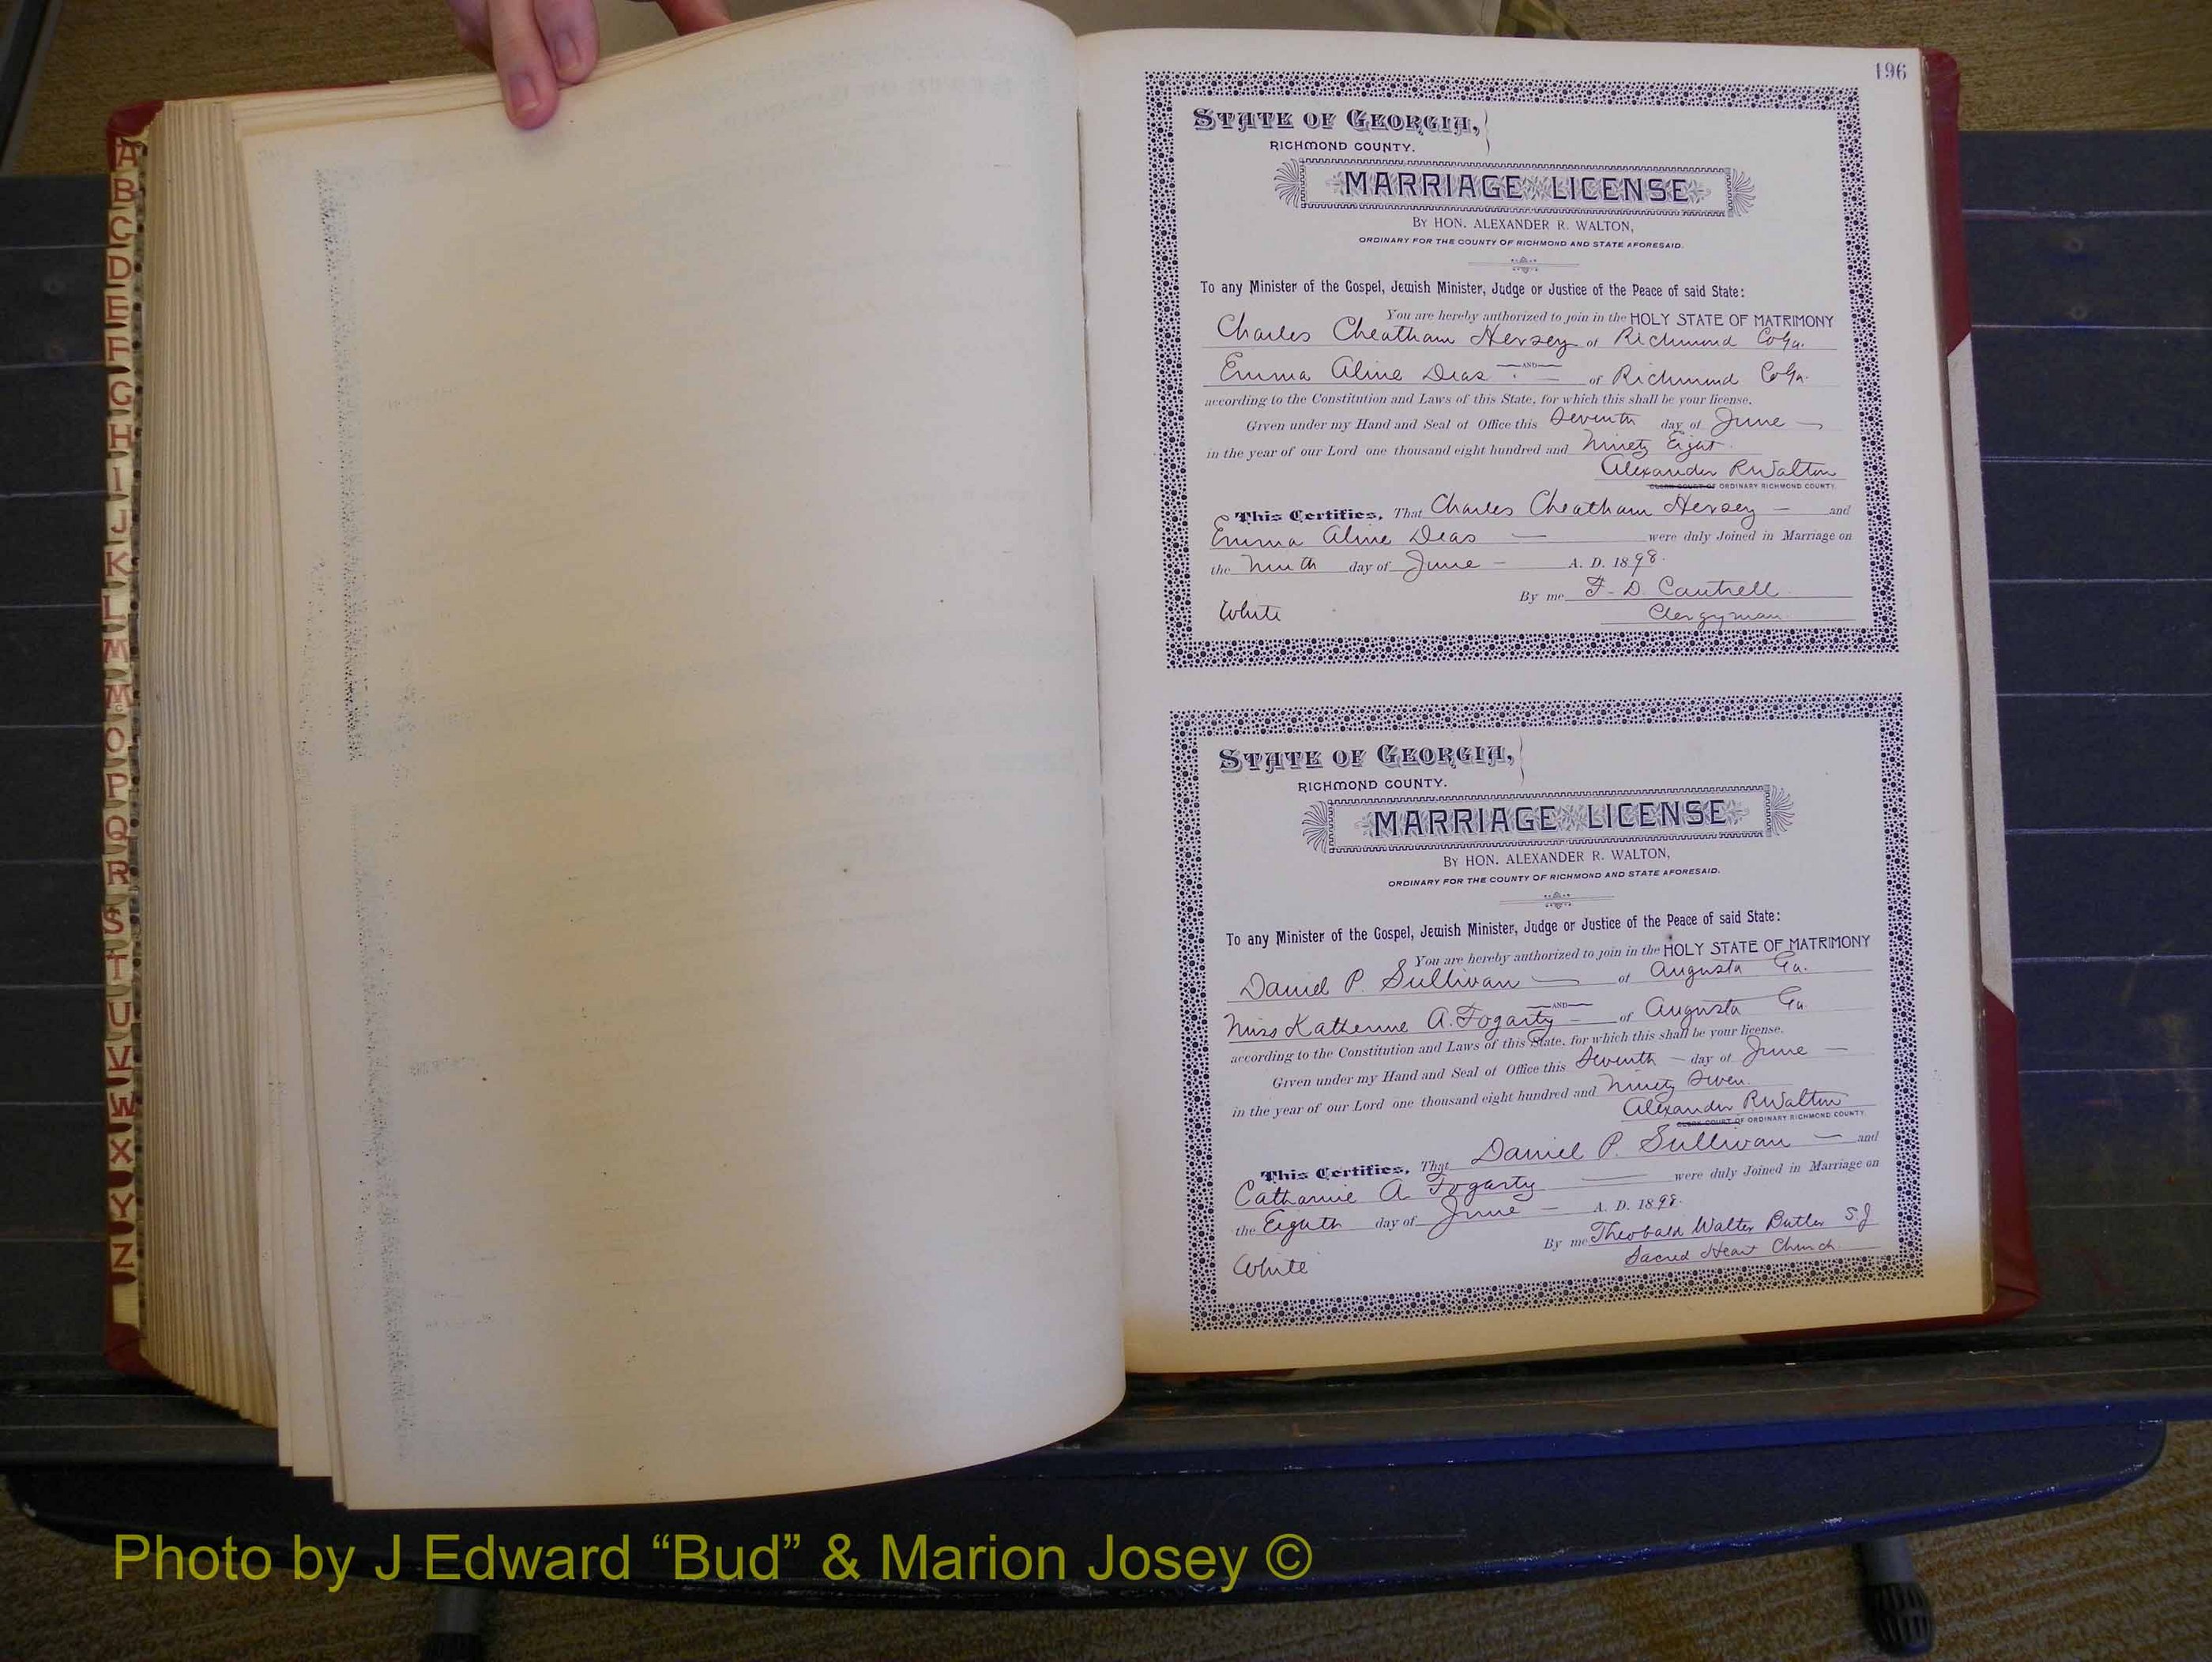 A
B
C
D
E
F
G
H
I
J
K
L
M
Mc
O
P
Q
R
S
T
U
V
W
X
Y
Z
196
STATE OF GEORGIA,
RICHMOND COUNTY.
MARRIAGE LICENSE
BY HON. ALEXANDER R. WALTON,
ORDINARY FOR THE COUNTY OF RICHMOND AND STATE AFORESAID.
To any Minister of the Gospel, Jewish Minister, Judge or Justice of the Peace of said State:
You are hereby authorized to join in the HOLY STATE OF MATRIMONY
Charles Cheatham Hersey of Richmond Co Ga.
AND
Emma Aline Deas of Richmond Co Ga.
according to the Constitution and Laws of this State, for which this shall be your license.
Given under my Hand and Seal of Office this Seventh day of June
in the year of our Lord one thousand eight hundred and Ninety Eight
Alexander R Walton
CLERK COURT OF ORDINARY RICHMOND COUNTY.
This Certifies, That Charles Cheatham Hersey and
Emma Aline Deas were duly Joined in Marriage on
the Ninth day of June A. D. 1898.
By me F. D. Cantrell
White Clergyman
STATE OF GEORGIA,
RICHMOND COUNTY.
MARRIAGE LICENSE
BY HON. ALEXANDER R. WALTON,
ORDINARY FOR THE COUNTY OF RICHMOND AND STATE AFORESAID.
To any Minister of the Gospel, Jewish Minister, Judge or Justice of the Peace of said State:
You are hereby authorized to join in the HOLY STATE OF MATRIMONY
Daniel P. Sullivan of Augusta Ga.
AND
Miss Katherine A. Fogarty of Augusta Ga.
according to the Constitution and Laws of this State, for which this shall be your license.
Given under my Hand and Seal of Office this Seventh day of June
in the year of our Lord one thousand eight hundred and Ninety Seven.
Alexander R Walton
CLERK COURT OF ORDINARY RICHMOND COUNTY.
This Certifies, That Daniel P. Sullivan and
Catharine A Fogarty were duly Joined in Marriage on
the Eighth day of June A. D. 1898.
By me Theobald Walter Butler S.J
White Sacred Heart Church
Photo by J Edward “Bud” & Marion Josey ©